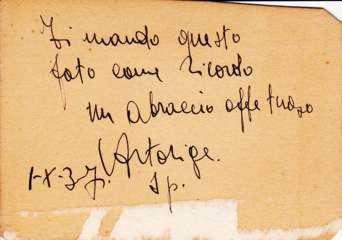 Ti mando questo
foto come ricordo
un abraccio affetuoso
1-X-37.
Sp.